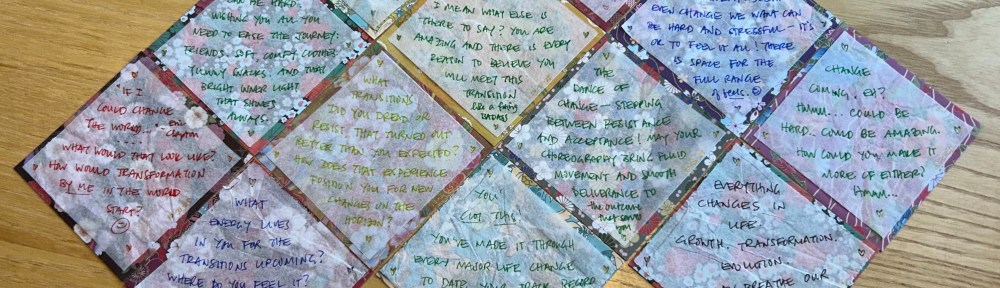 CAN BE HARD.
WISHING YOU ALL YOU
NEED TO EASE THE JOURNEY:
FRIENDS. SOFT, COMFY CLOTHES.
YUMMY SNACKS. AND THAT
BRIGHT INNER LIGHT
THAT SHINES
ALWAYS.
I MEAN WHAT ELSE IS
THERE TO SAY? YOU ARE
AMAZING AND THERE IS EVERY
REASON TO BELIEVE YOU
WILL MEET THIS
TRANSITION
like a
BADASS
EVEN CHANGE WE WANT CAN
BE HARD AND STRESSFUL - IT'S
OK TO FEEL IT ALL! THERE
IS SPACE FOR THE
FULL RANGE
of feels. ☺
"IF I
COULD CHANGE
THE WORLD..." - Eric
Clapton
WHAT WOULD THAT LOOK LIKE?
HOW WOULD TRANSFORMATION
BY ME IN THE WORLD
START?
☺
WHAT
TRANSITIONS
DID YOU DREAD OR
RESIST THAT TURNED OUT
BETTER THAN YOU EXPECTED?
HOW DOES THAT EXPERIENCE
POSITION YOU FOR NEW
CHANGES ON THE
HORIZON?
THE
DANCE OF
CHANGE - STEPPING
BETWEEN RESISTANCE
AND ACCEPTANCE! MAY YOUR
CHOREOGRAPHY BRING FLUID
MOVEMENT AND SMOOTH
DELIVERANCE TO
the outcome
that
you
CHANGE
COMING, EH?
HMMM... COULD BE
HARD. COULD BE AMAZING.
HOW COULD YOU MAKE IT
MORE OF EITHER?
HMMM...
WHAT
ENERGY LIVES
IN YOU FOR THE
TRANSITIONS UPCOMING?
WHERE DO YOU FEEL IT?
YOU
GOT THIS!
YOU'VE MADE IT THROUGH
EVERY MAJOR LIFE CHANGE
TO DATE. YOUR TRACK RECORD
EVERYTHING
CHANGES IN
LIFE.
GROWTH. TRANSFORMATION.
EVOLUTION.
BREATHE OUR